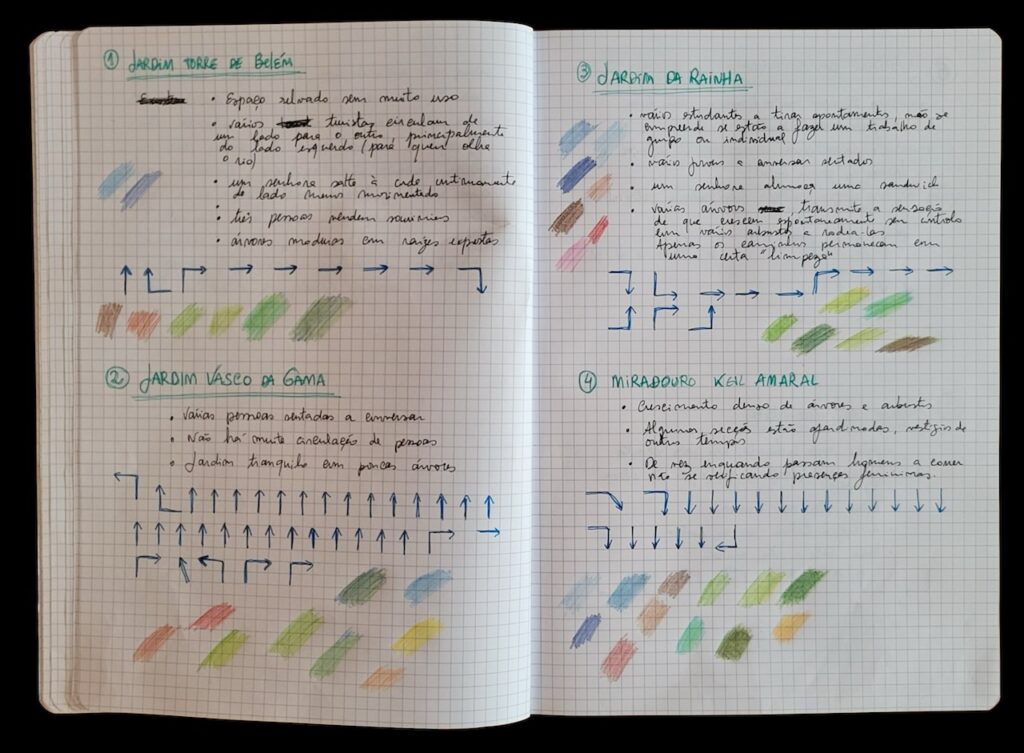 ① JARDIM TORRE DE BELÉM
• Espaço relvado sem muito uso
• vários turistas circulam de
um lado para o outro, principalmente
do lado esquerdo (para quem olha
o rio)
• um senhora salta à corda
do lado menos movimentado
• três pessoas vendem souvenirs
• árvores modernas com raízes expostas
② JARDIM VASCO DA GAMA
• Várias pessoas sentadas a conversar
• Não há muita circulação de pessoas
• Jardim tranquilo com poucas árvores
③ JARDIM DA RAINHA
• vários estudantes a tirar apontamentos, não se
comprende se estão a fazer um trabalho de
grupo ou individual
• vários jovens a conversar sentados
• um senhora almoça uma sandwich
• várias árvores transmite a sensação
de que crescem espontaneamente sem controlo
com vários arbustos a rodea-las
Apenas os caminhos permanecem com
uma certa "limpeza"
④ MIRADOURO KEIL AMARAL
• Crescimento denso de árvores e arbustos
• Algumas secções estão ajardinadas, vestígios de
outros tempos
• De vez enquando passam homens a correr
não se verificando presenças femininas.